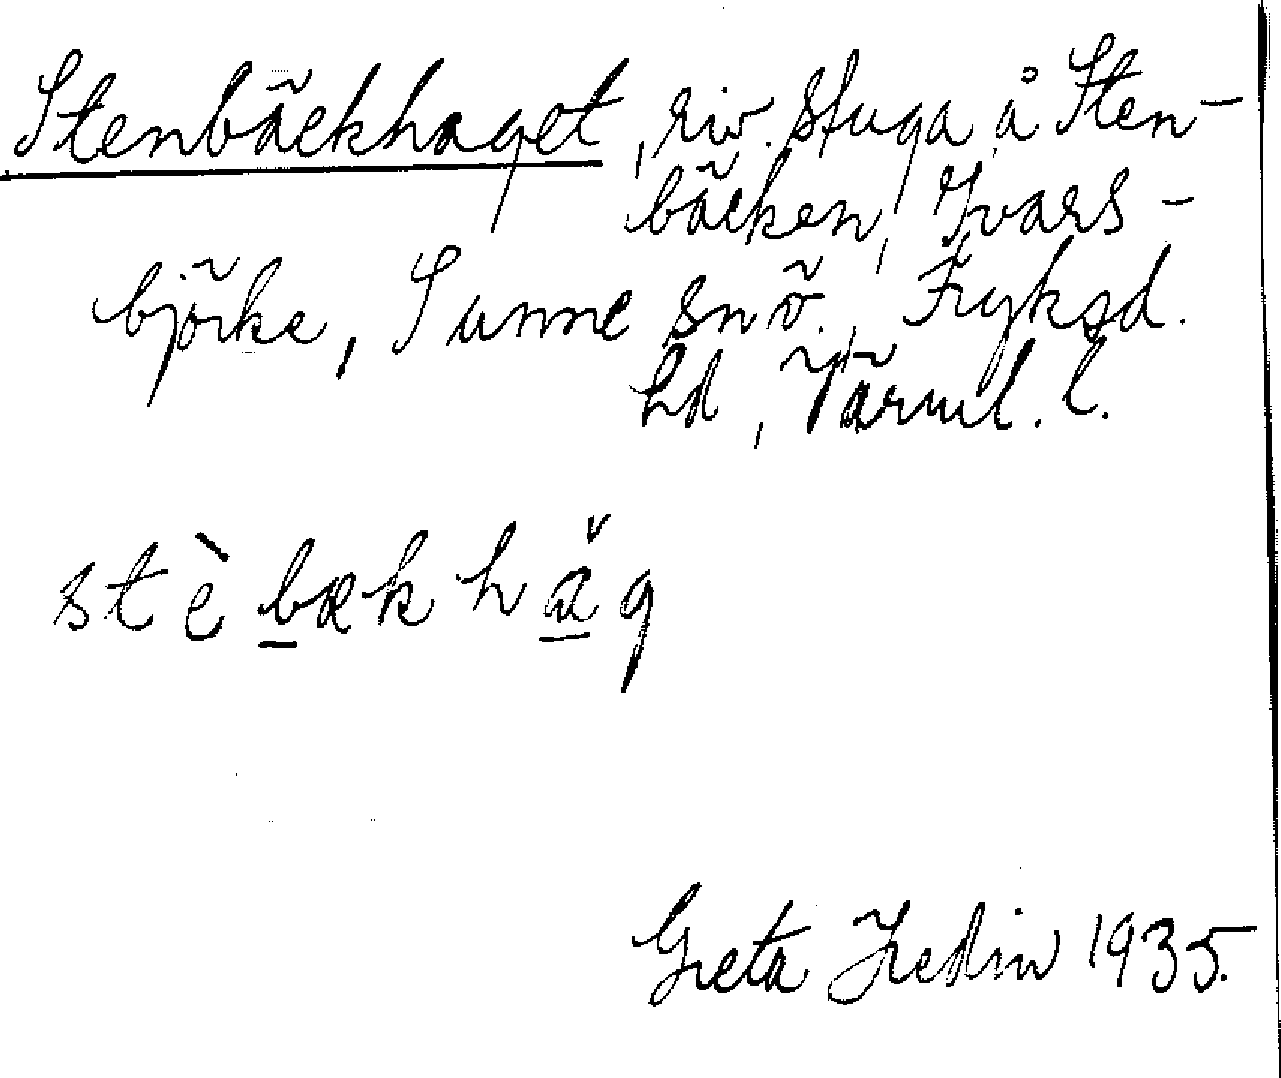 Stenbäckhaget, riv. stuga å Sten-
bäcken, Ivars-
björke, Sunne snö., Fryksd.
hd, Värml. l.
stè bæk hǎg
Greta Hedin 1935.